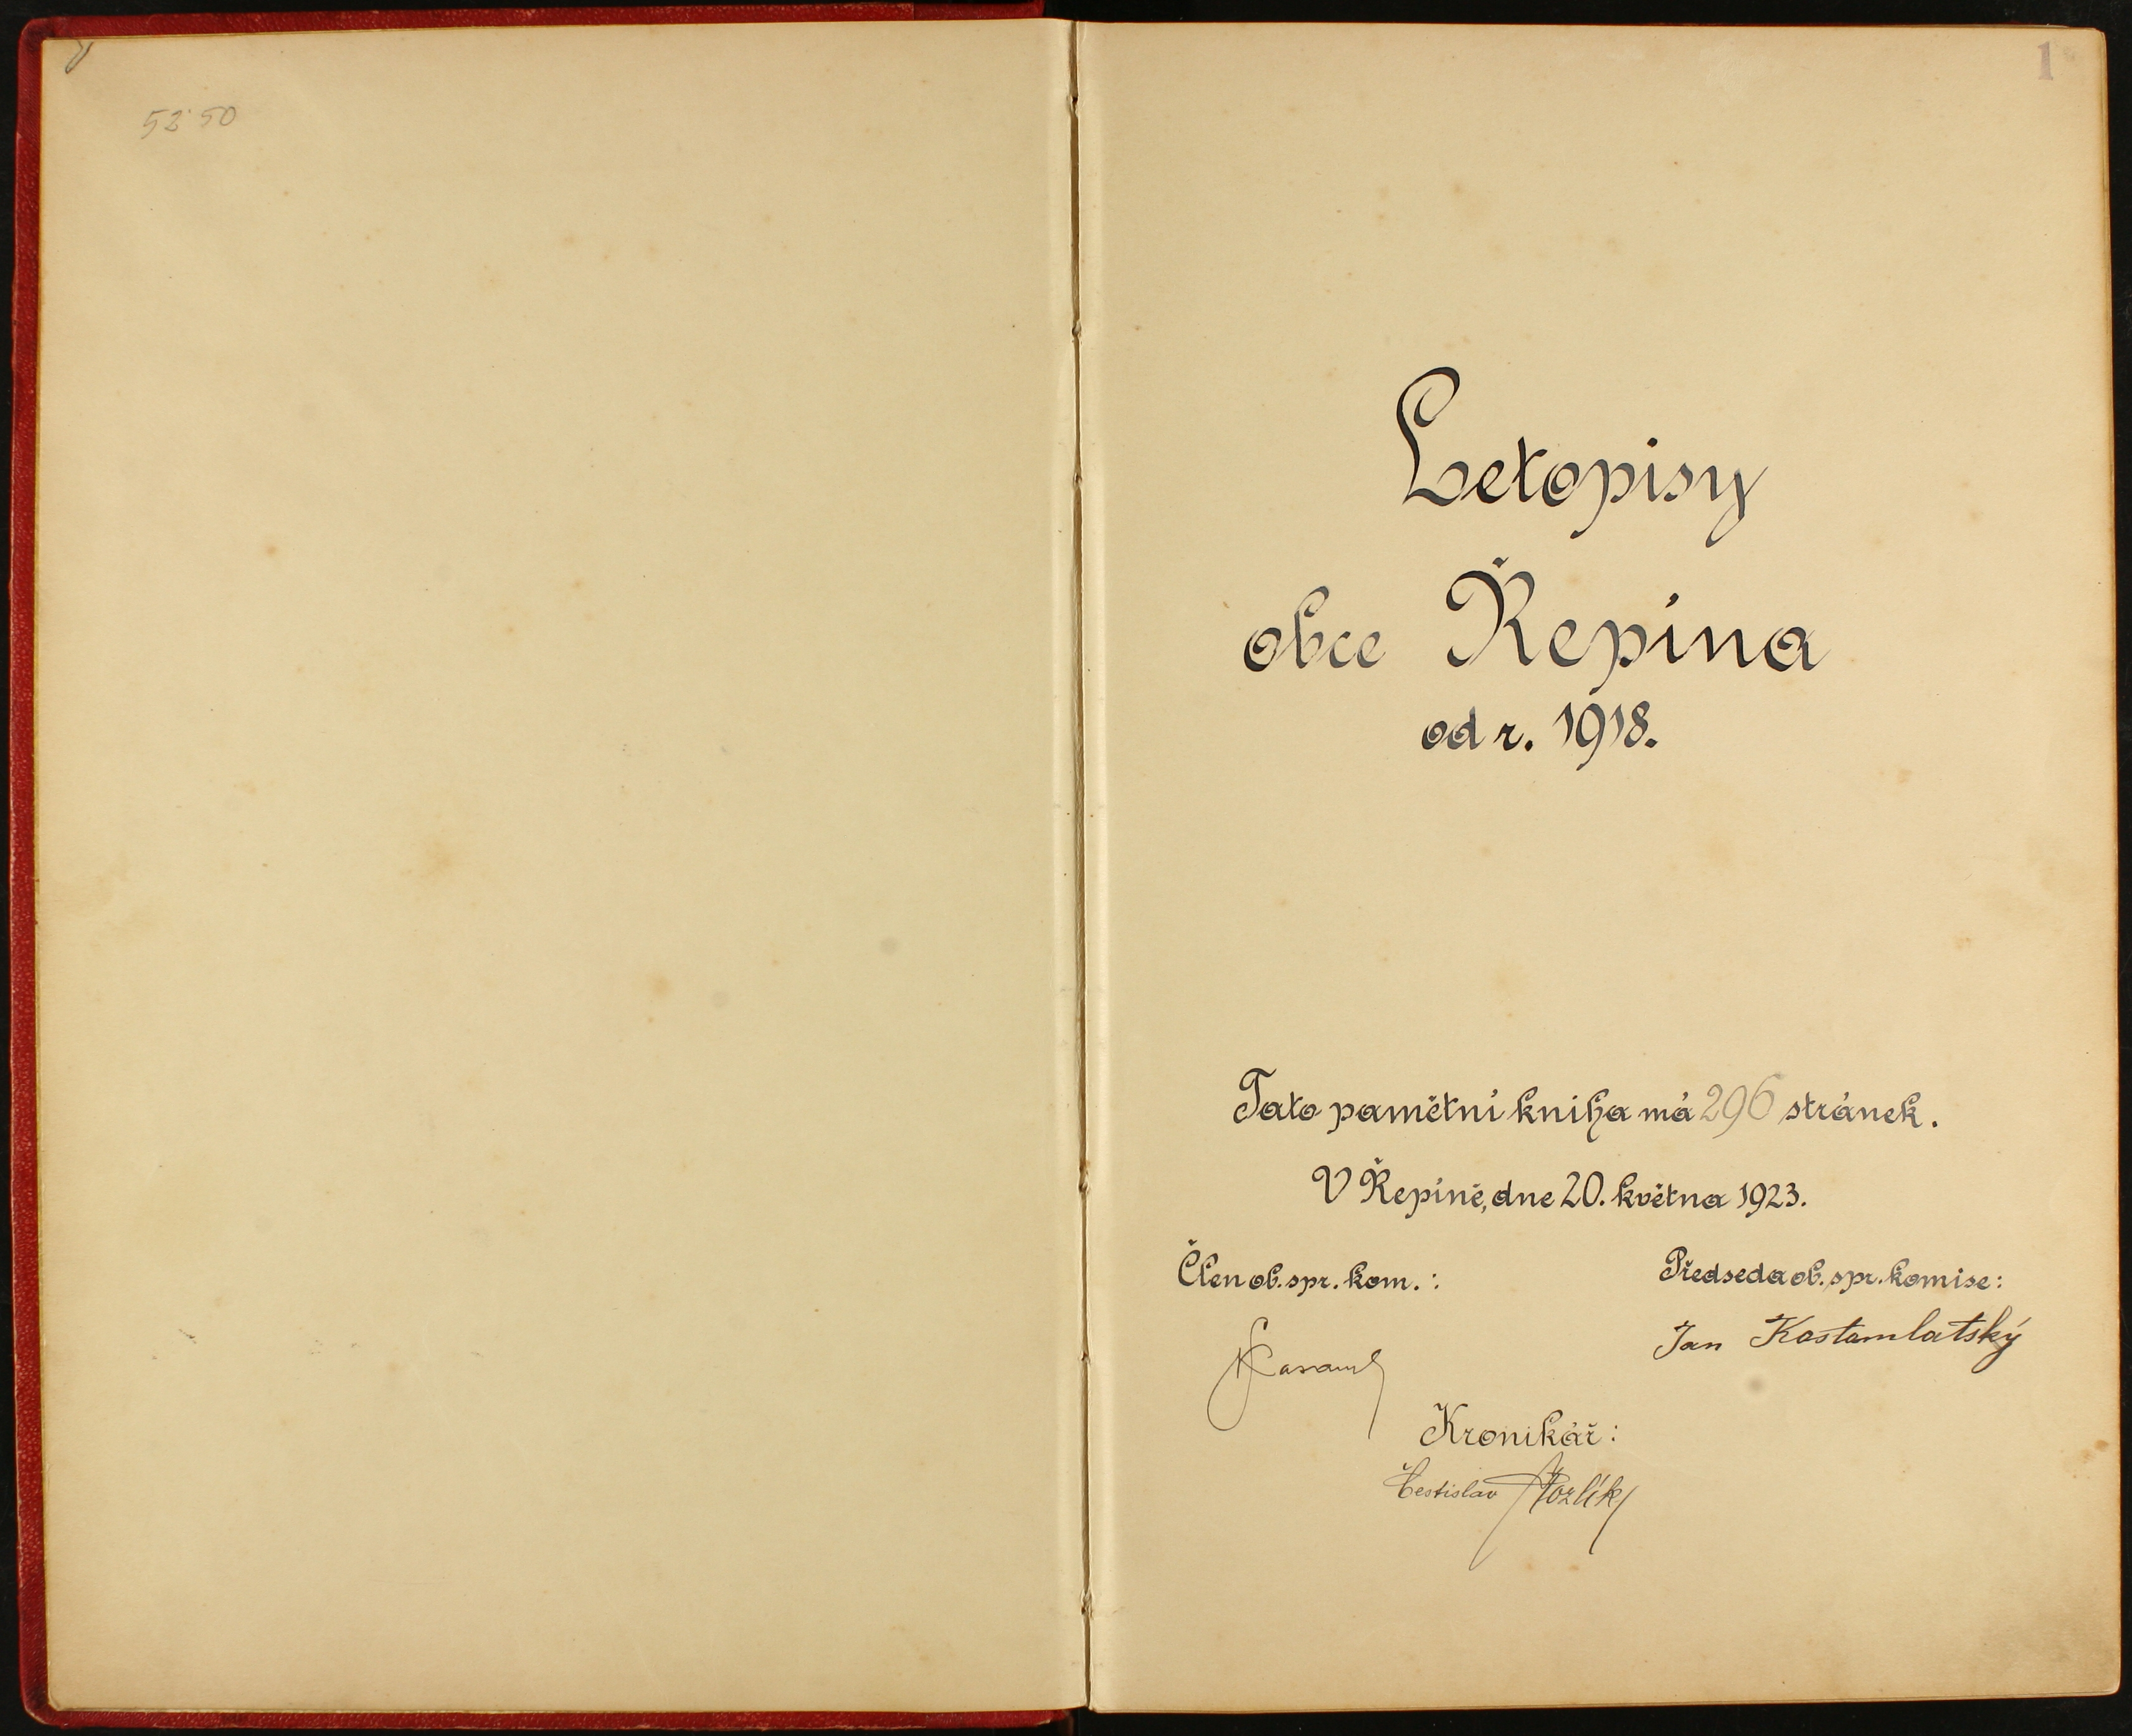 52·50
1
Letopisy
obce Řepína
od r. 1918.
Tato pamětní kniha má 296 stránek.
V Řepíně, dne 20. května 1923.
Člen ob. spr. kom.:
Předseda ob. spr. komise:
Jan Kostomlatský
Kronikář:
Čestislav